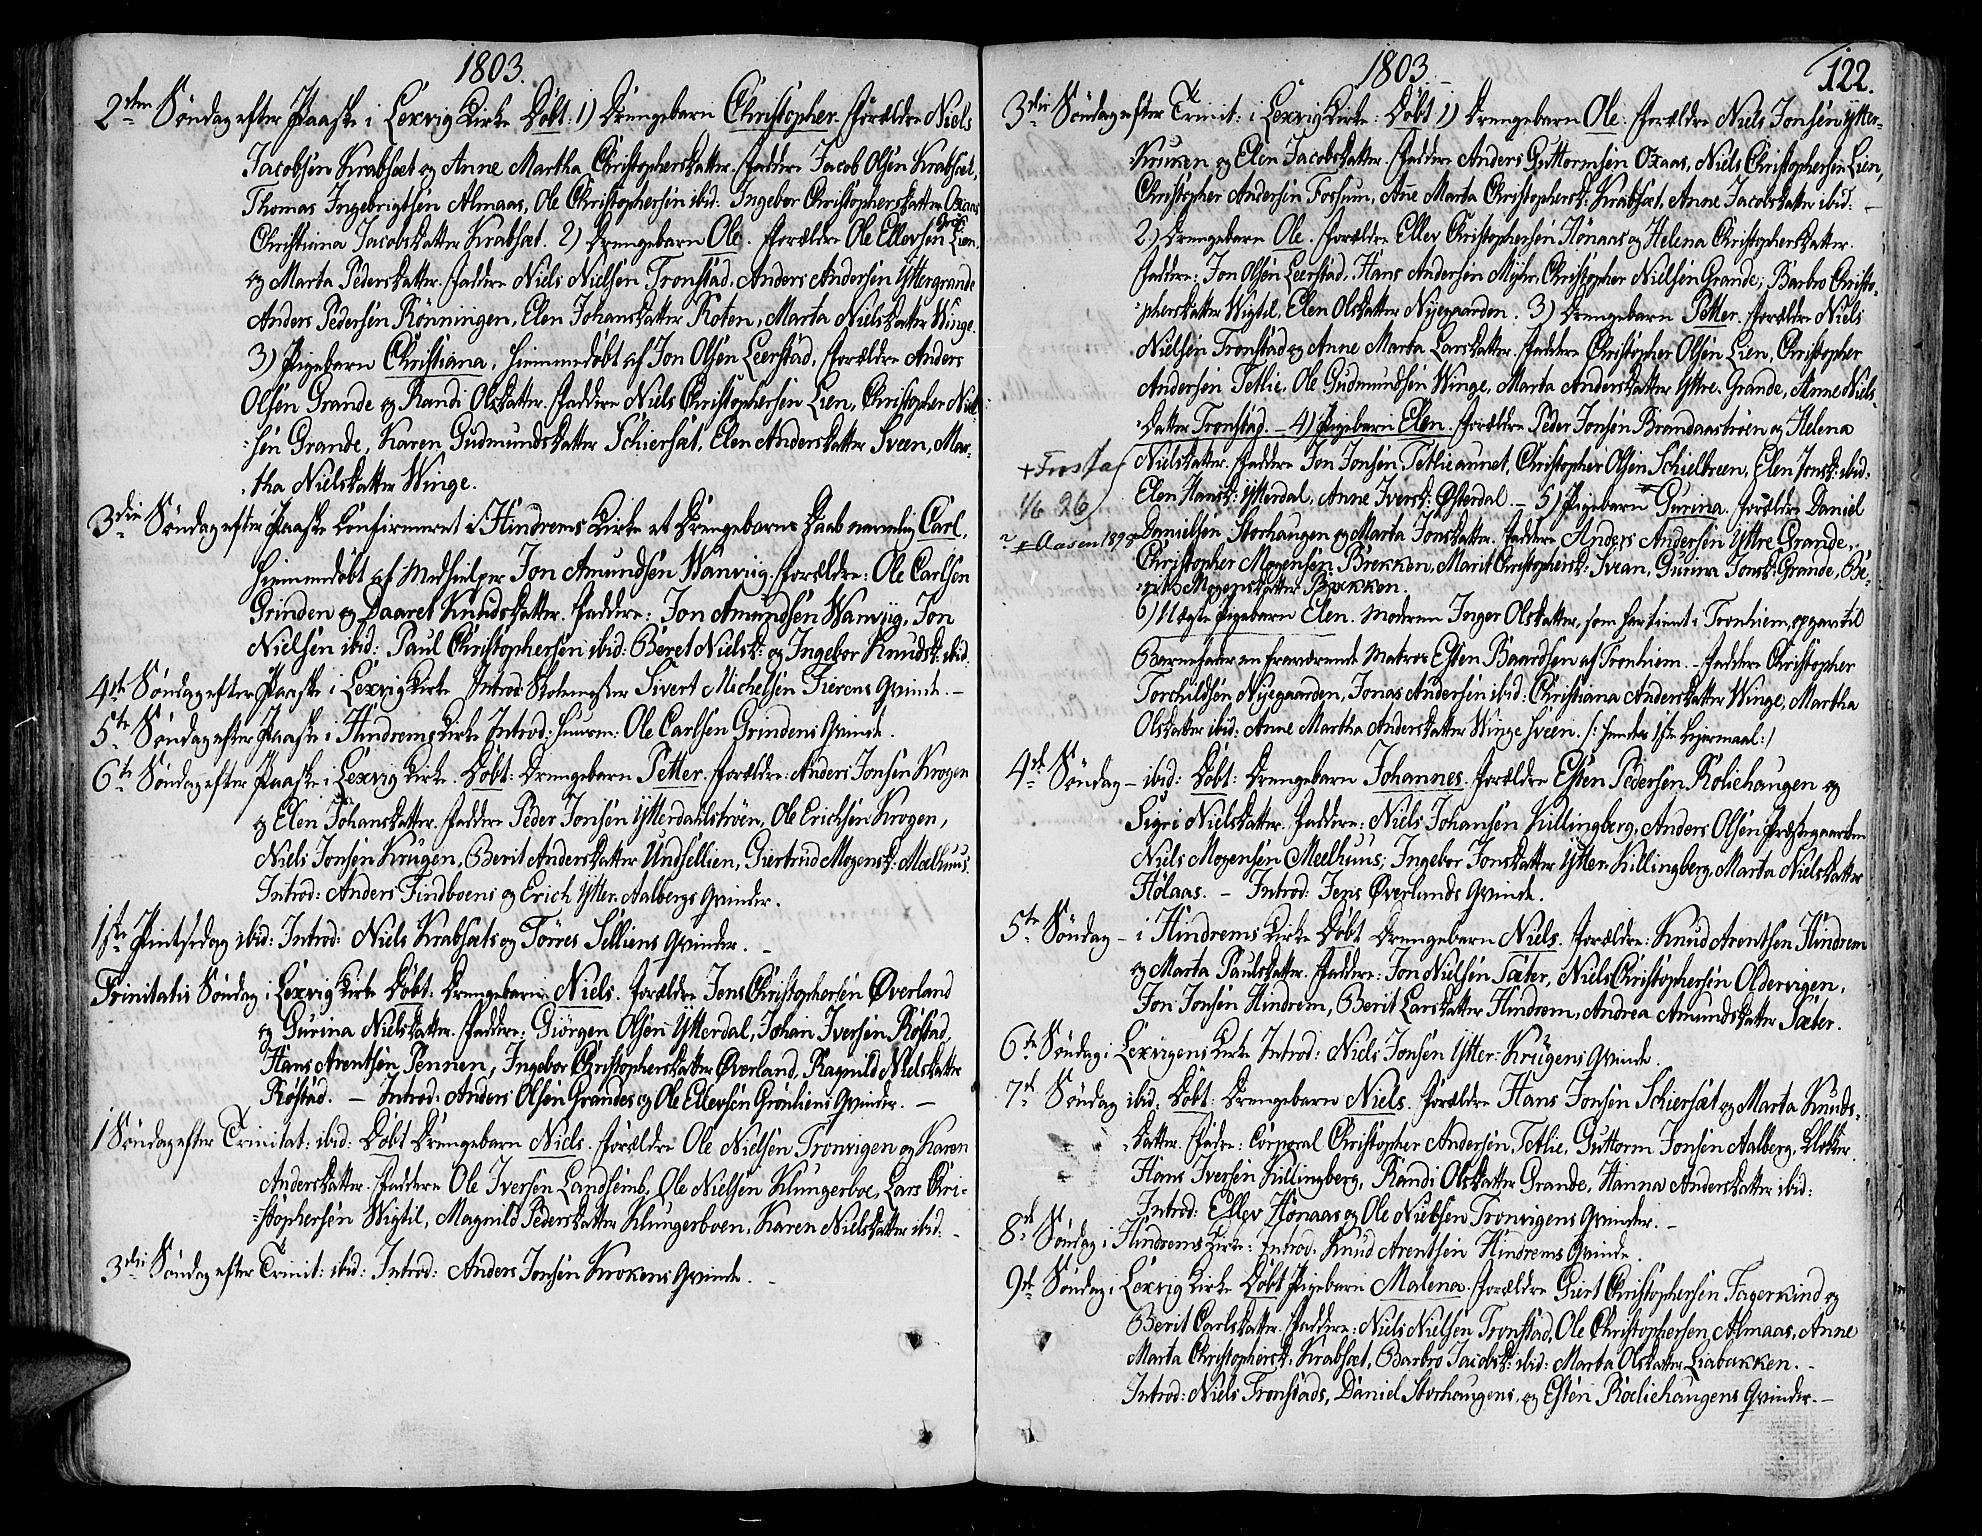 1803.
2den Søndag efter Paaske i Lexvig Kirke Døbt: 1) Drengebarn Christopher. Forældre Niels
Jacobsen Krabsæt og Anne Martha Christophersdatter. Faddere Jacob Olsen Krabsæt,
Thomas Ingebrigtsen Almaas, Ole Christophersen ibid: Ingebor Christophersdatter Oxaas
Christiana Jacobsdatter Krabsæt. 2) Drengebarn Ole. Forældre Ole Ellevsen Lien.
og Marta Pedersdatter. Faddere Niels Nielsen Tronstad. Anders Andersen Yttergrande
Anders Pedersen Rönningen, Elen Johansdatter Roten, Marta Nielsdatter Winge.
3) Pigebarn Christiana, hiemmedøbt af Jon Olsen Leerstad, Forældre Anders
Olsen Grande og Randi Olsdatter. Faddere Niels Christophersen Lien, Christopher Niel-
:sen Grande, Karen Gudmundsdatter Schiersæt, Elen Andersdatter Sveen, Mar-
:tha Nielsdatter Winge.
3die Søndag efter Paaske Confirmeret i Hindrems Kirke et Drengebarns Daab navnlig Carl,
hiemmedøbt af Medhielper Jon Amundsen Wanvig. Forældre: Ole Carlsen
Grinden og Daaret Knudsdatter. Faddere: Jon Amundsen Wanvig, Jon
Nielsen ibid: Paul Christophersen ibid: Beret Nielsd: og Ingebor Knudsd: ibid.
4de Søndag efter Paaske i Lexvig Kirke Introd: Skolemester Sivert Michelsen Fierens Qvinde.
5te Søndag efter Paaske i Hindrems Kirke Introd: Huusm: Ole Carlsen Grindens Qvinde.
6te Søndag efter Paaske i Lexvig Kirke. Døbt: Drengebarn Petter. Forældre: Anders Jonsen Krogen
og Elen Johansdatter. Faddere Peder Jonsen Ytterdahlströen, Ole Erichsen Krogen,
Niels Jonsen Krugen, Berit Andersdatter Undsellien, Giertrud Mogensd: Mælhuus.
Introd: Anders Findboens og Erich Ytter-Aalbergs Qvinder.
1ste Pintsedag ibid: Introd: Niels Krabsæts og Törres Selliens Qvinder.
Trinitatis Søndag i Lexvig Kirke Døbt: Drengebarn Niels. Forældre Jens Christophersen Øverland
og Gurina Nielsdatter. Faddere: Giörgen Olsen Ytterdal, Johan Iversen Röstad,
Hans Arentsen Pennen, Ingebor Christophersdatter Øverland, Ragnild Nielsdatter
Röstad. – Introd: Anders Olsen Grandes og Ole Ellevsen Grönliens Qvinder. –
1 Søndag efter Trinitat: ibid: Døbt Drengebarn Niels. Forældre Ole Nielsen Tronvigen og Karen
Andersdatter. Faddere Ole Iversen Landsemb, Ole Nielsen Klungerboe, Lars Chri-
:stophersen Wigtil, Magnild Pedersdatter Klungerboen, Karen Nielsdatter ibid:
3die Søndag efter Trinit: ibid: Introd: Anders Jonsen Krokens Qvinde.
1803.
122.
3die Søndag efter Trinit: i Lexvig Kirke: Døbt 1) Drengebarn Ole. Forældre Niels Jonsen Ytter-
:Kruken og Elen Jacobsdatter. Faddere Anders Guttormsen Oxaas, Niels Christophersen Lien,
Christopher Andersen Fossum, Anne Marta Christophersd: Krabsæt, Anne Jacobsdatter ibid:
2) Drengebarn Ole. Forældre Ellev Christophersen Hönaas og Helena Christophersdatter.
Faddere: Jon Olsen Leerstad, Hans Andersen Myhr, Christopher Nielsen Grande, Barbro Christo-
:phersdatter Wigtil, Elen Olsdatter Nyegaarden. 3) Drengebarn Petter. Forældre Niels
Nielsen Tronstad og Anne Marta Larsdatter. Faddere Christopher Olsen Lien, Christopher
Andersen Tetlie, Ole Gudmundsen Winge, Marta Andersdatter Yttre-Grande, Anne Niels-
:datter Tronstad. – 4) Pigebarn Elen. Forældre Peder Jonsen Brandaaströen og Helena
Nielsdatter. Faddere Jon Jonsen Tetlieaunet, Christopher Olsen Schielbreen, Elen Jonsd: ibid:
Elen Hansd: Ytterdal, Anne Iversd: Østerdal. – 5) Pigebarn Gurina. Forældre Daniel
Danielsen Storhaugen og Marta Jonsdatter. Faddere Anders Andersen Yttre Grande,
Christopher Mogensen Brekken, Marit Christophersd: Svean, Gunna Jonsd: Grande, Be-
:rit Mogensdatter Brekken.
+ Frosta
16/26
? + Aasen 1898
6) Uægte Pigebarn Elen. Moderen Inger Olsdatter, som har tient i Tronhiem, opgav til
Barnefader en fraværende Matros Esten Baardsen af Tronhiem. – Faddere Christopher
Torchildsen Nyegaarden, Jonas Andersen ibid: Christiana Andersdatter Winge, Martha
Olsdatter ibid: Anne Martha Andersdatter Winge Sveen. /: hendes 1ste Leiermaal:/
4de Søndag – ibid: Døbt: Drengebarn Johannes. Forældre Esten Pedersen Roliehaugen og
Sigri Nielsdatter. Faddere: Niels Johansen Killingberg, Anders Olsen Præstegaarden
Niels Mogensen Meelhuus, Ingebor Jonsdatter Ytter-Killingberg, Marta Nielsdatter
Hölaas. – Introd: Jens Øverlands Qvinde.
5te Søndag – i Hindrems Kirke Døbt Drengebarn Niels. Forældre: Knud Arentsen Hindrem
og Marta Paulsdatter. Faddere: Jon Nielsen Sæter, Niels Christophersen Oldervigen,
Jon Jonsen Hindrem, Berit Larsdatter Hindrem, Andrea Amundsdatter Sæter.
6te Søndag i Lexvigens Kirke Introd: Niels Jonsen Ytter-Krugens Qvinde.
7de Søndag ibid: Døbt: Drengebarn Niels. Forældre Hans Jonsen Schiersæt og Marta Knuds-
:datter. Faddere: Corporal Christopher Andersen Tetlie, Guttorm Jonsen Aalberg, Klokker
Hans Iversen Killingberg, Randi Olsdatter Grande, Hanna Andersdatter ibid:
Introd: Ellev Hönaas og Ole Nielsen Tronvigens Qvinder. –
8de Søndag i Hindrems Kirke: Introd: Knud Arentsen Hindrems Qvinde.
9de Søndag i Lexvig Kirke Døbt Pigebarn Malena. Forældre Giert Christophersen Fagervind og
Berit Carlsdatter. Faddere: Niels Nielsen Tronstad, Ole Christophersen Almaas, Anne
Marta Christophersd: Krabsæt, Barbro Jacobsd: ibid: Marta Olsdatter Liabakken. –
Introd: Niels Tronstads, Daniel Storhaugens, og Esten Roeliehaugens Qvinder. –